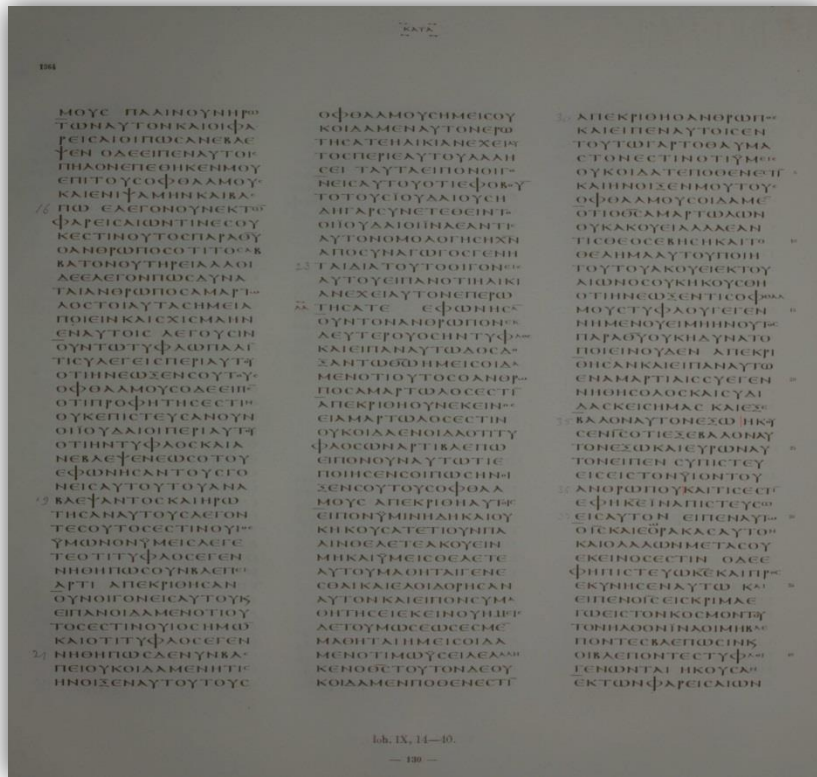 ΚΑΤΑ
1361
ΜΟΥϹ ΠΑΛΙΝΟΥΝΗΡΩ
ΤΩΝΑΥΤΟΝΚΑΙΟΙΦΑ
ΡΕΙϹΑΙΟΙΠΩϹΑΝΕΒΛΕ
ΨΕΝ ΟΔΕΕΙΠΕΝΑΥΤΟΙϹ
ΠΗΛΟΝΕΠΕΘΗΚΕΝΜΟΥ
ΕΠΙΤΟΥϹΟΦΘΑΛΜΟΥϹ
ΚΑΙΕΝΙΨΑΜΗΝΚΑΙΒΛΕ
16 ΠΩ ΕΛΕΓΟΝΟΥΝΕΚΤΩ̅
ΦΑΡΕΙϹΑΙΩΝΤΙΝΕϹΟΥ
ΚΕϹΤΙΝΟΥΤΟϹΠΑΡΑΘΥ
ΟΑΝΘΡΩΠΟϹΟΤΙΤΟϹΑΒ
ΒΑΤΟΝΟΥΤΗΡΕΙΑΛΛΟΙ
ΔΕΕΛΕΓΟΝΠΩϹΔΥΝΑ
ΤΑΙΑΝΘΡΩΠΟϹΑΜΑΡΤΩ
ΛΟϹΤΟΙΑΥΤΑϹΗΜΕΙΑ
ΠΟΙΕΙΝΚΑΙϹΧΙϹΜΑΗΝ
ΕΝΑΥΤΟΙϹ ΛΕΓΟΥϹΙΝ
ΟΥΝΤΩΤΥΦΛΩΠΑΛΙ
ΤΙϹΥΛΕΓΕΙϹΠΕΡΙΑΥΤΟΥ
ΟΤΙΗΝΕΩΞΕΝϹΟΥΤΟΥϹ
ΟΦΘΑΛΜΟΥϹΟΔΕΕΙΠΕ
ΟΤΙΠΡΟΦΗΤΗϹΕϹΤΙΝ
ΟΥΚΕΠΙϹΤΕΥϹΑΝΟΥΝ
ΟΙΙΟΥΔΑΙΟΙΠΕΡΙΑΥΤΟΥ
ΟΤΙΗΝΤΥΦΛΟϹΚΑΙΑ
ΝΕΒΛΕΨΕΝΕΩϹΟΤΟΥ
ΕΦΩΝΗϹΑΝΤΟΥϹΓΟ
ΝΕΙϹΑΥΤΟΥΤΟΥΑΝΑ
19 ΒΛΕΨΑΝΤΟϹΚΑΙΗΡΩ
ΤΗϹΑΝΑΥΤΟΥϹΛΕΓΟΝ
ΤΕϹΟΥΤΟϹΕϹΤΙΝΟΥΙΟϹ
ΫΜΩΝΟΝΫΜΕΙϹΛΕΓΕ
ΤΕΟΤΙΤΥΦΛΟϹΕΓΕΝ
ΝΗΘΗΠΩϹΟΥΝΒΛΕΠΕΙ
ΑΡΤΙ ΑΠΕΚΡΙΘΗϹΑΝ
ΟΥΝΟΙΓΟΝΕΙϹΑΥΤΟΥΚ
ΕΙΠΑΝΟΙΔΑΜΕΝΟΤΙΟΥ
ΤΟϹΕϹΤΙΝΟΥΙΟϹΗΜΩ
ΚΑΙΟΤΙΤΥΦΛΟϹΕΓΕΝ
21 ΝΗΘΗΠΩϹΔΕΝΥΝΒΛΕ
ΠΕΙΟΥΚΟΙΔΑΜΕΝΗΤΙϹ
ΗΝΟΙΞΕΝΑΥΤΟΥΤΟΥϹ
ΟΦΘΑΛΜΟΥϹΗΜΕΙϹΟΥ
ΚΟΙΔΑΜΕΝΑΥΤΟΝΕΡΩ
ΤΗϹΑΤΕΗΛΙΚΙΑΝΕΧΕΙΑΥ
ΤΟϹΠΕΡΙΕΑΥΤΟΥΛΑΛΗ
ϹΕΙ ΤΑΥΤΑΕΙΠΟΝΟΙΓΟ
ΝΕΙϹΑΥΤΟΥΟΤΙΕΦΟΒΟΥ
ΤΟΤΟΥϹΙΟΥΔΑΙΟΥϹΗ
ΔΗΓΑΡϹΥΝΕΤΕΘΕΙΝΤΟ
ΟΙΙΟΥΔΑΙΟΙΪΝΑΕΑΝΤΙϹ
ΑΥΤΟΝΟΜΟΛΟΓΗϹΗΧ̅Ν̅
ΑΠΟϹΥΝΑΓΩΓΟϹΓΕΝΗ
23 ΤΑΙΔΙΑΤΟΥΤΟΟΙΓΟΝΕΙϹ
ΑΥΤΟΥΕΙΠΑΝΟΤΙΗΛΙΚΙ
ΑΝΕΧΕΙΑΥΤΟΝΕΠΕΡΩ
ΤΗϹΑΤΕ ΕΦΩΝΗϹΑ̅
ΟΥΝΤΟΝΑΝΘΡΩΠΟΝΕΚ
ΔΕΥΤΕΡΟΥΟϹΗΝΤΥΦΛΟϹ
ΚΑΙΕΙΠΑΝΑΥΤΩΔΟϹΔΟ
ΞΑΝΤΩΘ̅Ω̅ΗΜΕΙϹΟΙΔΑ
ΜΕΝΟΤΙΟΥΤΟϹΟΑΝΘΡΩ
ΠΟϹΑΜΑΡΤΩΛΟϹΕϹΤΙ̅
ΑΠΕΚΡΙΘΗΟΥΝΕΚΕΙΝΟϹ
ΕΙΑΜΑΡΤΩΛΟϹΕϹΤΙΝ
ΟΥΚΟΙΔΑΕΝΟΙΔΑΟΤΙΤΥ
ΦΛΟϹΩΝΑΡΤΙΒΛΕΠΩ
ΕΙΠΟΝΟΥΝΑΥΤΩΤΙΕ
ΠΟΙΗϹΕΝϹΟΙΠΩϹΗΝΟΙ
ΞΕΝϹΟΥΤΟΥϹΟΦΘΑΛ
ΜΟΥϹ ΑΠΕΚΡΙΘΗΑΥΤΟΙϹ
ΕΙΠΟΝΫΜΙΝΗΔΗΚΑΙΟΥ
ΚΗΚΟΥϹΑΤΕΤΙΟΥΝΠΑ
ΛΙΝΘΕΛΕΤΕΑΚΟΥΕΙΝ
ΜΗΚΑΙΫΜΕΙϹΘΕΛΕΤΕ
ΑΥΤΟΥΜΑΘΗΤΑΙΓΕΝΕ
ϹΘΑΙΚΑΙΕΛΟΙΔΟΡΗϹΑΝ
ΑΥΤΟΝΚΑΙΕΙΠΟΝϹΥΜΑ
ΘΗΤΗϹΕΙΕΚΕΙΝΟΥΗΜΕΙϹ
ΔΕΤΟΥΜΩϹΕΩϹΕϹΜΕ
ΜΑΘΗΤΑΙΗΜΕΙϹΟΙΔΑ
ΜΕΝΟΤΙΜΩΫϹΕΙΛΕΛΑΛΗ
ΚΕΝΟΘ̅Ϲ̅ΤΟΥΤΟΝΔΕΟΥ
ΚΟΙΔΑΜΕΝΠΟΘΕΝΕϹΤΙ̅
30 ΑΠΕΚΡΙΘΗΟΑΝΘΡΩΠΟϹ
ΚΑΙΕΙΠΕΝΑΥΤΟΙϹΕΝ
ΤΟΥΤΩΓΑΡΤΟΘΑΥΜΑ
ϹΤΟΝΕϹΤΙΝΟΤΙΫΜΕΙϹ
ΟΥΚΟΙΔΑΤΕΠΟΘΕΝΕϹΤΙ̅
ΚΑΙΗΝΟΙΞΕΝΜΟΥΤΟΥϹ
ΟΦΘΑΛΜΟΥϹΟΙΔΑΜΕ
ΟΤΙΟΘ̅Ϲ̅ΑΜΑΡΤΩΛΩΝ
ΟΥΚΑΚΟΥΕΙΑΛΛΕΑΝ
ΤΙϹΘΕΟϹΕΒΗϹΗΚΑΙΤΟ
ΘΕΛΗΜΑΑΥΤΟΥΠΟΙΗ
ΤΟΥΤΟΥΑΚΟΥΕΙΕΚΤΟΥ
ΑΙΩΝΟϹΟΥΚΗΚΟΥϹΘΗ
ΟΤΙΗΝΕΩΞΕΝΤΙϹΟΦΘΑΛ
ΜΟΥϹΤΥΦΛΟΥΓΕΓΕΝ
ΝΗΜΕΝΟΥΕΙΜΗΗΝΟΥΤΟϹ
ΠΑΡΑΘΥΟΥΚΗΔΥΝΑΤΟ
ΠΟΙΕΙΝΟΥΔΕΝ ΑΠΕΚΡΙ
ΘΗϹΑΝΚΑΙΕΙΠΑΝΑΥΤΩ
ΕΝΑΜΑΡΤΙΑΙϹϹΥΕΓΕΝ
ΝΗΘΗϹΟΛΟϹΚΑΙϹΥΔΙ
ΔΑϹΚΕΙϹΗΜΑϹ ΚΑΙΕΞΕ
35 ΒΑΛΟΝΑΥΤΟΝΕΞΩ ΗΚΟΥ
ϹΕΝΙ̅Ϲ̅ΟΤΙΕΞΕΒΑΛΟΝΑΥ
ΤΟΝΕΞΩΚΑΙΕΥΡΩΝΑΥ
ΤΟΝΕΙΠΕΝ ϹΥΠΙϹΤΕΥ
ΕΙϹΕΙϹΤΟΝΫΙΟΝΤΟΥ
36 ΑΝΘΡΩΠΟΥΚΑΙΤΙϹΕϹΤΙ
ΕΦΗΚΕΪΝΑΠΙϹΤΕΥϹΩ
37 ΕΙϹΑΥΤΟΝ ΕΙΠΕΝΑΥΤΩ
ΟΙ̅Ϲ̅ΚΑΙΕΟΡΑΚΑϹΑΥΤΟ
ΚΑΙΟΛΑΛΩΝΜΕΤΑϹΟΥ
ΕΚΕΙΝΟϹΕϹΤΙΝ ΟΔΕΕ
ΦΗΠΙϹΤΕΥΩΚ̅Ε̅ΚΑΙΠΡΟϹ
ΕΚΥΝΗϹΕΝΑΥΤΩ ΚΑΙ
ΕΙΠΕΝΟΙ̅Ϲ̅ΕΙϹΚΡΙΜΑΕ
ΓΩΕΙϹΤΟΝΚΟϹΜΟΝΤΟΥ
ΤΟΝΗΛΘΟΝΪΝΑΟΙΜΗΒΛΕ
ΠΟΝΤΕϹΒΛΕΠΩϹΙΝΚ
ΟΙΒΛΕΠΟΝΤΕϹΤΥΦΛΟΙ
ΓΕΝΩΝΤΑΙ ΗΚΟΥϹΑΝ
ΕΚΤΩΝΦΑΡΕΙϹΑΙΩΝ
Ioh. IX, 14—40.
— 130 —